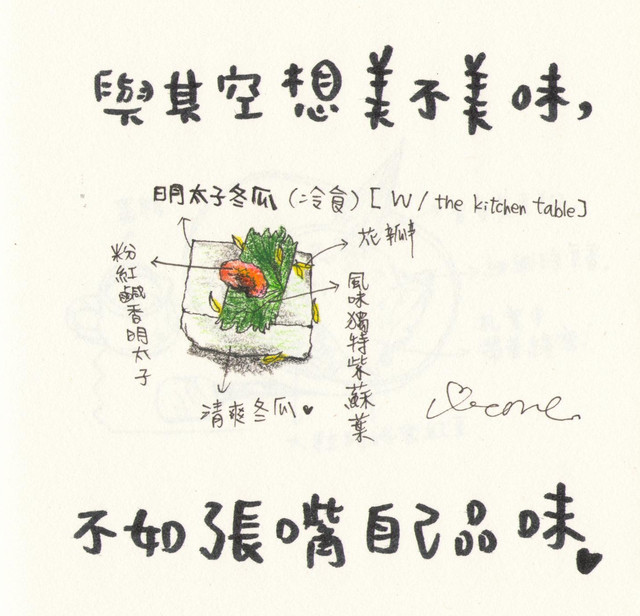 與其空想美不美味,
明太子冬瓜(冷食)[W/the kitchen table]
花瓣
粉紅鹹香明太子
風味獨特紫蘇葉
清爽冬瓜♥
不如張嘴自己品味♥